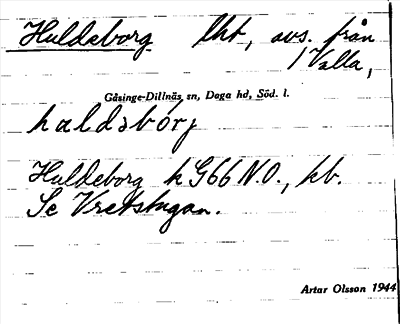 Huldeborg lht, avs. från
1 Valla,
Gåsinge-Dillnäs sn, Daga hd, Söd. l.
haldəbórj
Huldeborg h G66 N.O., kb.
Se Vretstugan.
Artar Olsson 1944